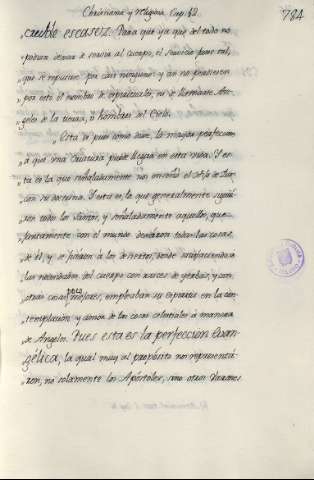 Christiana y religiosa Cap. 12. 784
creible escasez. Para que ya que del todo no
"podian dexar de servir al cuerpo, el servicio fuese tal,
"que se reputase por casi ninguno: y asi no perdiesen
"por esto el nombre de espirituales, ni de llamarse An-
"geles de la tierra, o hombres del Cielo.
"Esta es pues como dixe, la mayor perfeccion
"a que una criatura puede llegar en esta vida. Y es-
"ta es la que señaladamente nos enseñó el
con su doctrina. Y esta es la que generalmente siguie-
ron todos los Santos, y señaladamente aquellos, que
"juntamente con el mundo dexaron todas las cosas
"de él, y se fueron a los desiertos, donde satisfaciendo a
"las necesidades del cuerpo con raices de yerbas, y con
"otras cosas poco mejores, empleaban su espiritu en la con-
"templacion y amor de las cosas celestiales a manera
"de Angeles. Pues esta es la perfeccion Evan-
gélica, la qual muy al proposito nos representá-
ron, no solamente los Apóstoles, sino otros Varones